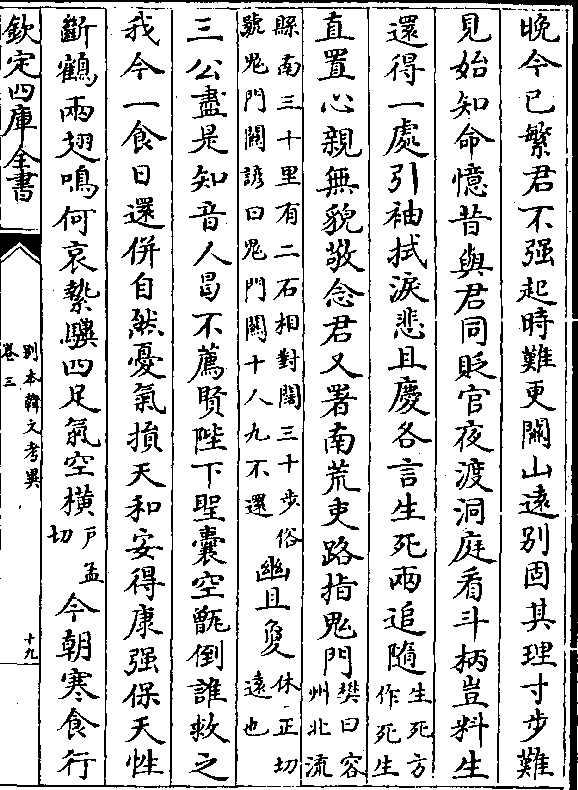 晚今已繁君不强起時難更關山遠別固其理寸步難
見始知命憶昔與君同貶官夜渡洞庭看斗柄豈料生
還得一處引袖拭淚悲且慶各言生死兩追隨生死方作死生
直置心親無貌敬念君又署南荒吏路指鬼門樊曰容州北流
縣南三十里有二石相對闊三十步俗號鬼門關諺曰鬼門關十人九不還幽且敻休正切遠也
三公盡是知音人曷不薦賢陛下聖囊空甑倒誰救之
我今一食日還併自然憂氣損天和安得康强保天性
斷鶴兩翅鳴何哀縶驥四足氣空橫戶孟切今朝寒食行
欽定四庫全書
别本韓文考異
卷三
十九